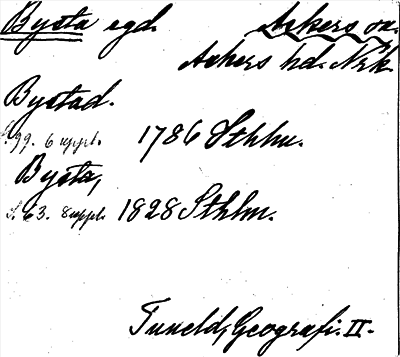 Bysta egd. Askers sn.
Askers hd. Nrk.
Bystad.
S. 99. 6 uppl. 1786 Sthlm.
Bysta,
S. 63. 8 uppl. 1828 Sthlm.
Tuneld, Geografi. II.